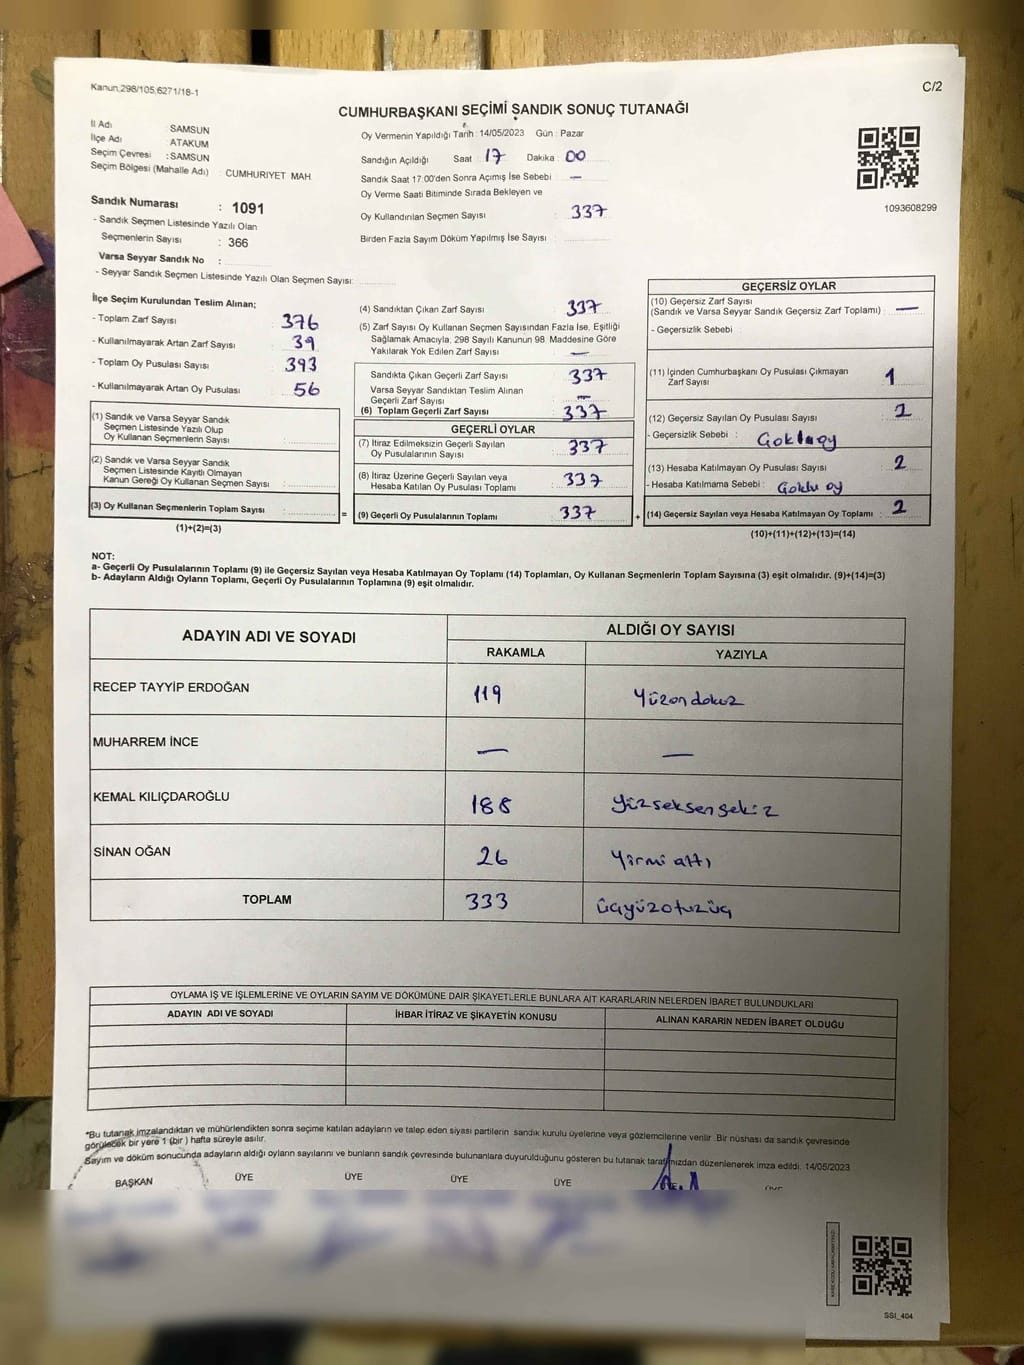 Kanun,298/105,6271/18-1
C/2
CUMHURBAŞKANI SEÇİMİ SANDIK SONUÇ TUTANAĞI
İl Adı : SAMSUN
İlçe Adı : ATAKUM
Seçim Çevresi : SAMSUN
Seçim Bölgesi (Mahalle Adı) : CUMHURIYET MAH
Sandık Numarası : 1091
- Sandık Seçmen Listesinde Yazılı Olan
Seçmenlerin Sayısı : 366
Varsa Seyyar Sandık No :
- Seyyar Sandık Seçmen Listesinde Yazılı Olan Seçmen Sayısı:
Oy Vermenin Yapıldığı Tarih : 14/05/2023 Gün : Pazar
Sandığın Açıldığı Saat : 17 Dakika : 00
Sandık Saat 17:00'den Sonra Açımış İse Sebebi : —
Oy Verme Saati Bitiminde Sırada Bekleyen ve
Oy Kullandırılan Seçmen Sayısı : 337
Birden Fazla Sayım Döküm Yapılmış İse Sayısı :
1093608299
İlçe Seçim Kurulundan Teslim Alınan;
- Toplam Zarf Sayısı : 376
- Kullanılmayarak Artan Zarf Sayısı : 39
- Toplam Oy Pusulası Sayısı : 393
- Kullanılmayarak Artan Oy Pusulası : 56
(1) Sandık ve Varsa Seyyar Sandık
Seçmen Listesinde Yazılı Olup
Oy Kullanan Seçmenlerin Sayısı :
(2) Sandık ve Varsa Seyyar Sandık
Seçmen Listesinde Kayıtlı Olmayan
Kanun Gereği Oy Kullanan Seçmen Sayısı :
(3) Oy Kullanan Seçmenlerin Toplam Sayısı :
(1)+(2)=(3)
=
(4) Sandıktan Çıkan Zarf Sayısı : 337
(5) Zarf Sayısı Oy Kullanan Seçmen Sayısından Fazla İse, Eşitliği
Sağlamak Amacıyla, 298 Sayılı Kanunun 98. Maddesine Göre
Yakılarak Yok Edilen Zarf Sayısı : —
Sandıkta Çıkan Geçerli Zarf Sayısı : 337
Varsa Seyyar Sandıktan Teslim Alınan
Geçerli Zarf Sayısı : —
(6) Toplam Geçerli Zarf Sayısı : 337
GEÇERLİ OYLAR
(7) İtiraz Edilmeksizin Geçerli Sayılan
Oy Pusulalarının Sayısı : 337
(8) İtiraz Üzerine Geçerli Sayılan veya
Hesaba Katılan Oy Pusulası Toplamı : 337
(9) Geçerli Oy Pusulalarının Toplamı : 337
+
GEÇERSİZ OYLAR
(10) Geçersiz Zarf Sayısı
(Sandık ve Varsa Seyyar Sandık Geçersiz Zarf Toplamı) : —
- Geçersizlik Sebebi :
(11) İçinden Cumhurbaşkanı Oy Pusulası Çıkmayan
Zarf Sayısı : 1
(12) Geçersiz Sayılan Oy Pusulası Sayısı :
- Geçersizlik Sebebi :
(13) Hesaba Katılmayan Oy Pusulası Sayısı : 2
- Hesaba Katılmama Sebebi :
(14) Geçersiz Sayılan veya Hesaba Katılmayan Oy Toplamı : 2
(10)+(11)+(12)+(13)=(14)
NOT:
a- Geçerli Oy Pusulalarının Toplamı (9) ile Geçersiz Sayılan veya Hesaba Katılmayan Oy Toplamı (14) Toplamları, Oy Kullanan Seçmenlerin Toplam Sayısına (3) eşit olmalıdır. (9)+(14)=(3)
b- Adayların Aldığı Oyların Toplamı, Geçerli Oy Pusulalarının Toplamına (9) eşit olmalıdır.
ADAYIN ADI VE SOYADI
ALDIĞI OY SAYISI
RAKAMLA YAZIYLA
RECEP TAYYİP ERDOĞAN 119 Yüzondokuz
MUHARREM İNCE — —
KEMAL KILIÇDAROĞLU 188 Yüzseksensekiz
SİNAN OĞAN 26 Yirmi altı
TOPLAM 333 üçyüzotuzüç
OYLAMA İŞ VE İŞLEMLERİNE VE OYLARIN SAYIM VE DÖKÜMÜNE DAİR ŞİKAYETLERLE BUNLARA AİT KARARLARIN NELERDEN İBARET BULUNDUKLARI
ADAYIN ADI VE SOYADI İHBAR İTİRAZ VE ŞİKAYETİN KONUSU ALINAN KARARIN NEDEN İBARET OLDUĞU
*Bu tutanak imzalandıktan ve mühürlendikten sonra seçime katılan adayların ve talep eden siyasi partilerin sandık kurulu üyelerine veya gözlemcilerine verilir. Bir nüshası da sandık çevresinde
görülecek bir yere 1 (bir) hafta süreyle asılır.
Sayım ve döküm sonucunda adayların aldığı oyların sayılarını ve bunların sandık çevresinde bulunanlara duyurulduğunu gösteren bu tutanak tarafımızdan düzenlenerek imza edildi. 14/05/2023
BAŞKAN ÜYE ÜYE ÜYE ÜYE
SSI_404